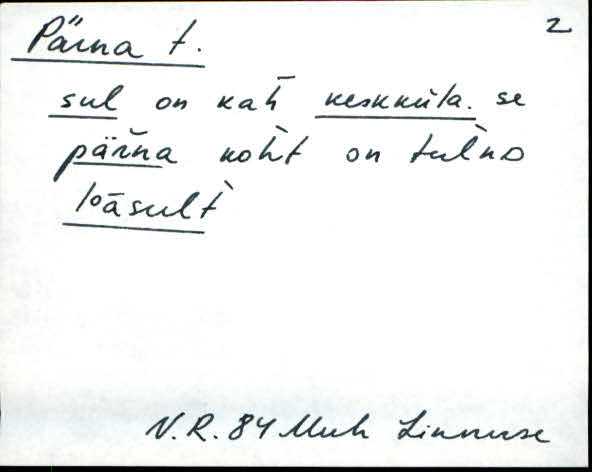 Pärna t. 2
sul on kah̄ keskküla. se
pär̆na koh̀t on tul̀nd
lºāsult̀
V.R. 84 Muh Linnuse